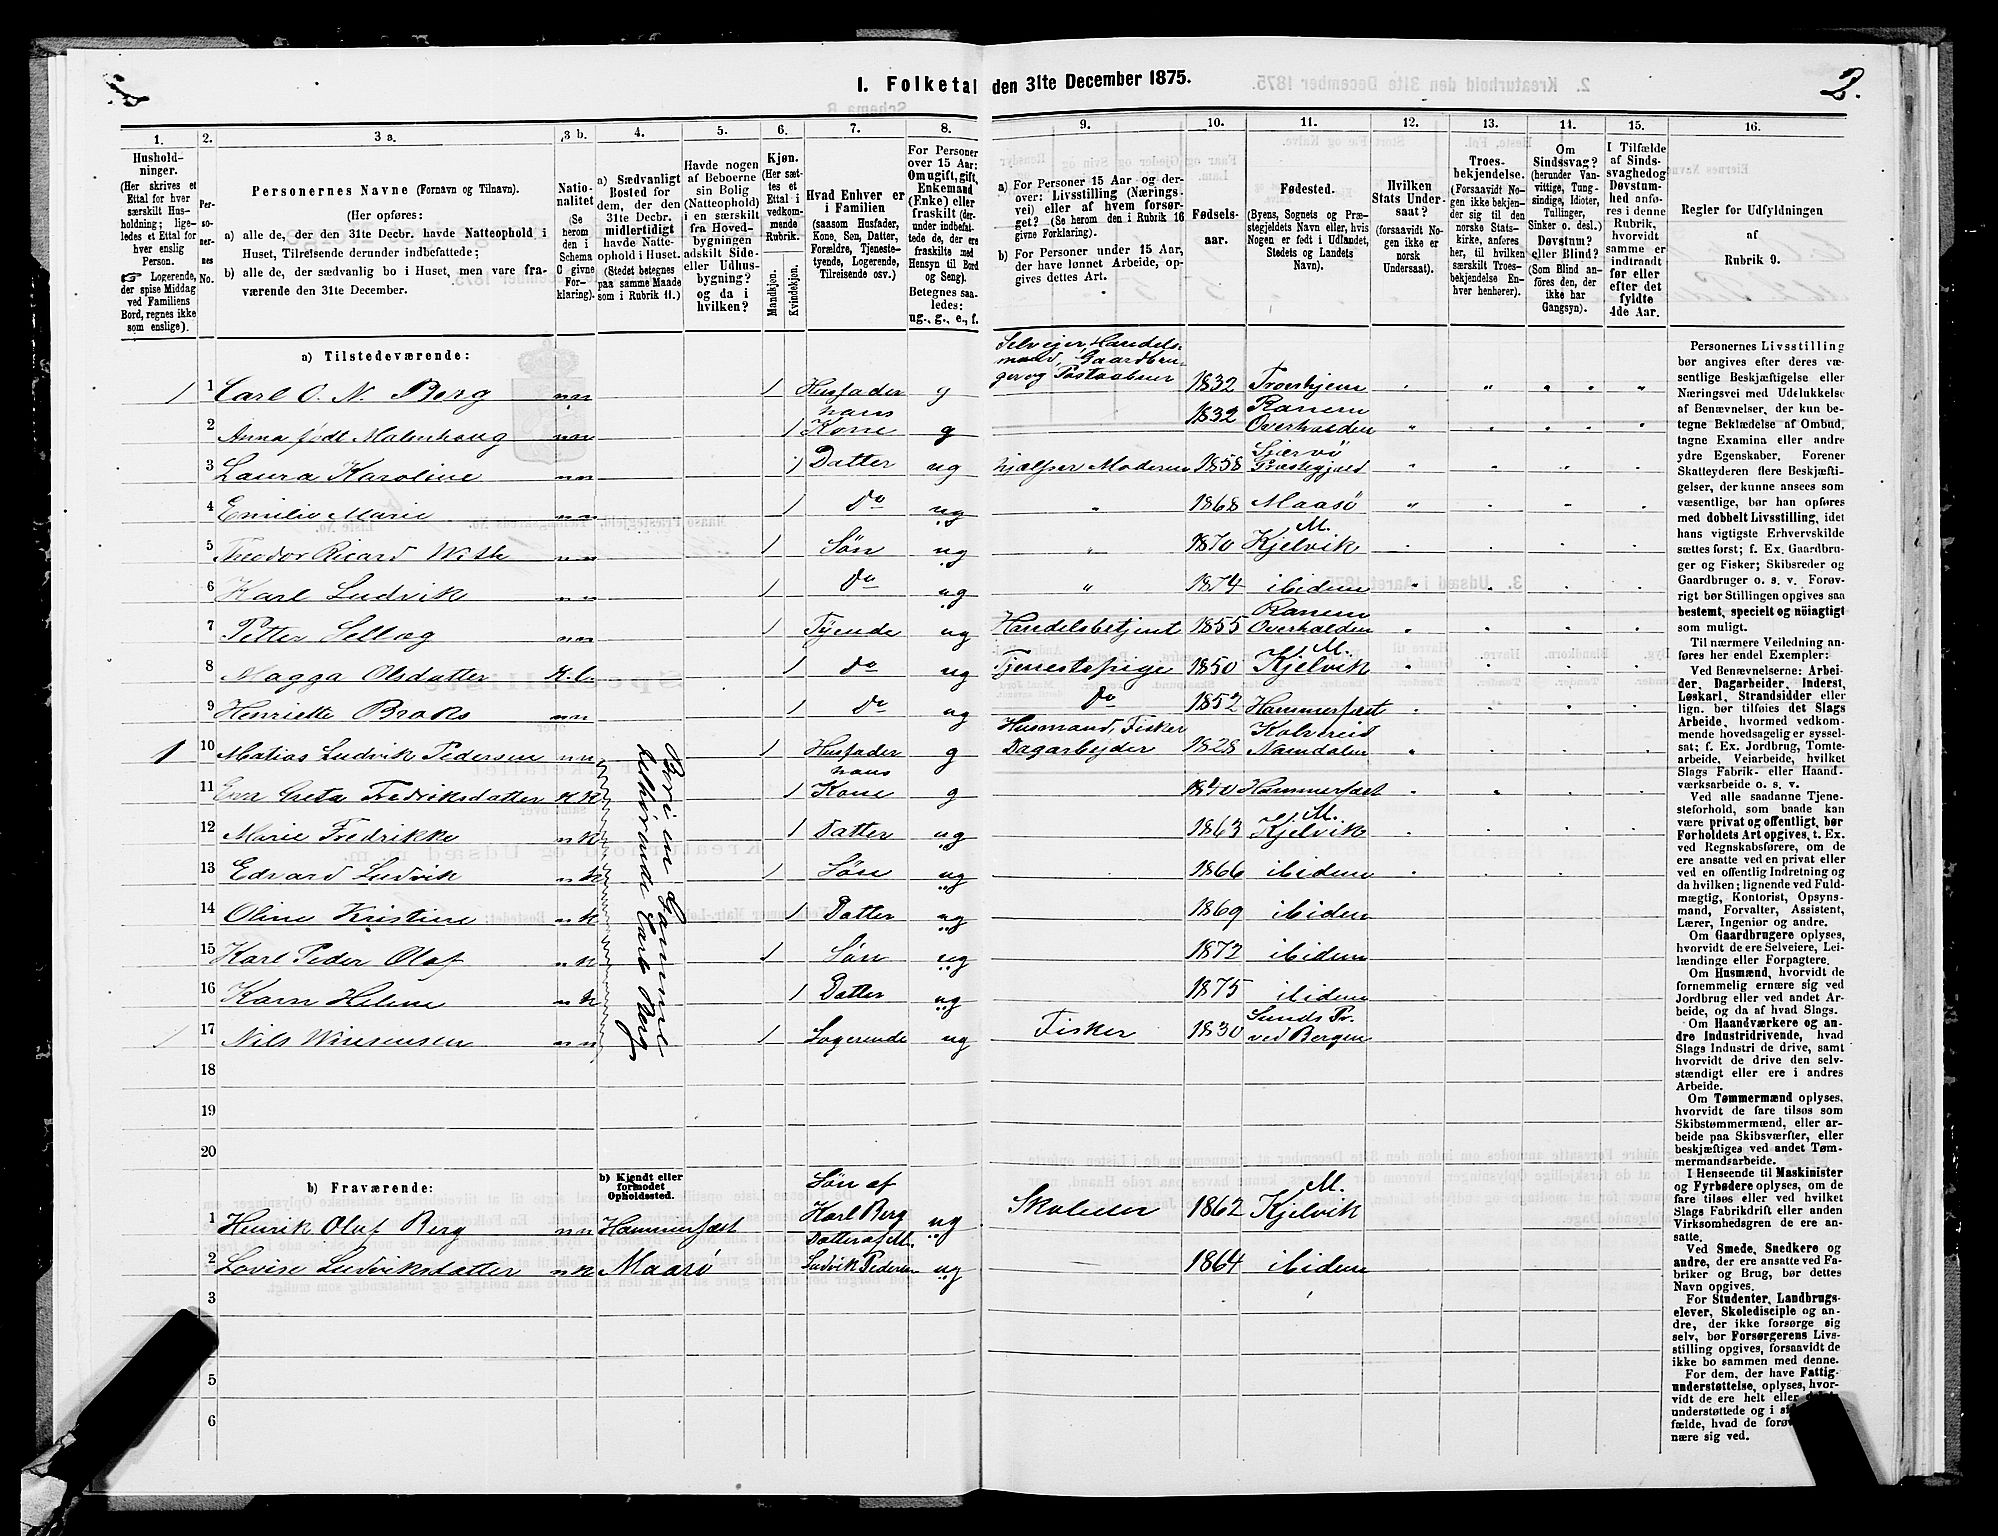 I. Folketal den 31te December 1875.
2.
1.
Husholdninger.
(Her skrives et
Ettal for hver
særskilt Husholdning; ligeledes
et Ettal for
hver enslig
Person.
☞ Logerende,
der spise Middag
ved Familiens
Bord, regnes ikke
som enslige).
2.
Personernes
No.
3 a.
Personernes Navne (Fornavn og Tilnavn).
(Her opføres:
a) alle de, der den 31te Decbr. havde Natteophold i
Huset, Tilreisende derunder indbefattede;
b) alle de, der sædvanlig bo i Huset, men vare fraværende
den 31te December.
3 b.
Nationalitet
(Se
herom
den i
Schema
C givne
Forklaring).
4.
a) Sædvanligt
Bosted for
dem, der den
31te Decbr.
midlertidigt
havde Natteophold
i Huset.
(Stedet betegnes
paa samme Maade
som i Rubrik 11.)
5.
Havde nogen
af Beboerne
sin Bolig
(Natteophold)
i en særskilt
fra Hovedbygningen
adskilt Side-
eller Udhusbygning?
og da i
hvilken?
6.
Kjøn.
(Her sættes
et
Ettal i
vedkommende
Rubrik.
Mandkjøn.
Kvindekjøn.
7.
Hvad Enhver er
i Familien
(saasom Husfader,
Kone, Søn, Datter,
Forældre, Tjenestetyende,
Logerende,
Tilreisende osv.)
8.
For Personer
over 15 Aar:
Om ugift, gift,
Enkemand
(Enke) eller
fraskilt (derunder
indbefattede
de, der ere
fraskilte med
Hensyn til Bord
og Seng).
Betegnes saaledes:
ug., g., e., f.
9.
a) For Personer 15 Aar og derover:
Livsstilling (Næringsvei)
eller af hvem forsørget?
(Se herom den i Rubrik 16
givne Forklaring).
b) For Personer under 15 Aar,
der have lønnet Arbeide, opgives
dettes Art.
10.
Fødselsaar.
11.
Fødested.
(Byens, Sognets og Præstegjeldets
Navn, eller hvis
Nogen er født i Udlandet,
Stedets og Landets
Navn).
12.
Hvilken
Stats Undersaat?
(forsaavidt Nogen
ikke er
norsk
Undersaat).
13.
Troesbekjendelse.
(Forsaavidt Nogen
ikke bekjender
sig til den
norske Statskirke,
anføres
her, til hvilken
særskilt Troesbekjendelse
Enhver
henhører).
14.
Om
Sindssvag?
(herunder Vanvittige,
Tungsindige,
Idioter,
Tullinger,
Sinker o. desl.)
Døvstum?
eller Blind?
(Som Blind anføres
den, der
ikke har
Gangsyn).
15.
I Tilfælde
af Sindssvaghed
og
Døvstumhed
anføres
i denne
Rubrik,
hvorvidt
samme er
indtraadt
før eller
efter det
fyldte
4de Aar.
16.
Regler for Udfyldningen
af
Rubrik 9.
a) Tilstedeværende:
1 1 Carl O. N. Berg nn 1 Husfader g Selveier, Handelsmand, Gaardbruger og Postaabner 1832 Troenhjem
2 Anna født Malenhaug nn 1 hans Kone g 1832 Ranem Overhalden
3 Laura Karoline nn 1 Datter ug hjælper Moderen 1858 Skjervø Præstegjeld
4 Emilie Marie nn 1 Do ug 1868 Maasø
5 Theodor Ricard With nn 1 Søn ug 1870 M. Kjelvik
6 Karl Ludvik nn 1 Do ug 1874 ibidem
7 Petter Selbæg nn 1 Tyende ug Handelsbetjent 1855 Ranem Overhalden
8 Magga Olsdatter K.l. 1 do ug Tjenestepige 1850 M. Kjelvik
9 Henriette Broks nn 1 Do ug Do 1852 Hammerfest
1 10 Matias Ludvik Pedersen nn 1 Husfader g Husmand, Fisker Dagarbejder 1828 Kolvereid Namdalen
11 Eva Greta Fredriksdatter K K 1 hans Kone g 1840 Hammerfest
12 Marie Fredrikke n K 1 Datter ug 1863 M. Kjelvik
13 Edvard Ludvik n K 1 Søn ug 1866 ibidem
14 Oline Kristine n K 1 Datter ug 1869 ibidem
15 Karl Peder Olaf n K 1 Søn ug 1872 ibidem
16 Karn Heline n K 1 Datter ug 1875 ibidem
1 17 Nils Winsensen nn 1 Logerende ug Fisker 1830 Sunds Pr. ved Bergen
Bor i en Gamme
tilhørende Carl Berg
18
19
20
b) Fraværende:
b) Kjendt eller
formodet
Opholdssted.
1 Henrik Olaf Berg nn Hammerfest Søn af Karl Berg ug Skoleelev 1862 M. Kjelvik
2 Lovise Ludviksdatter n K Maasø Datter af M. Ludvik Pedersen ug 1864 ibidem
3
4
5
6
Personernes Livsstilling
bør angives efter deres væsentlige
Beskjæftigelse eller
Næringsvei med Udelukkelse
af Benævnelser, der kun betegne
Beklædelse af Ombud,
tagne Examina eller andre
ydre Egenskaber. Forener
Skatteyderen flere Beskjæftigelser,
der kunne ansees som
væsentlige, bør han opføres
med dobbelt Livsstilling, idet
hans vigtigste Erhvervskilde
sættes først; f. Ex. Gaardbruger
og Fisker; Skibsreder og
Gaardbruger o. s. v. Forøvrigt
bør Stillingen opgives saa
bestemt, specielt og nöiagtigt
som muligt.
Til nærmere Veiledning anføres
her endel Exempler:
Ved Benævnelserne: Arbeider,
Dagarbeider, Inderst,
Løskarl, Strandsidder eller
lign. bør tilføies det Slags
Arbeide, hvormed vedkommende
hovedsagelig er sysselsat;
f. Ex. Jordbrug, Tomtearbeide,
Veiarbeide, hvilket
Slags Fabrik- eller Haandværksarbeide
o. s. v.
Ved alle saadanne Tjenesteforhold,
som baade kan
være privat og offentligt, bør
Forholdets Art opgives, t. Ex.
ved Regnskabsførere, om de
ere ansatte ved en privat eller
ved en offentlig Indretning og
da hvilken; lignende ved Fuldmægtig,
Kontorist, Opsynsmand,
Forvalter, Assistent,
Lærer, Ingeniør og andre.
Om Gaardbrugere oplyses,
hvorvidt de ere Selveiere, Leilændinge
eller Forpagtere.
Om Husmænd, hvorvidt de
fornemmelig ernære sig ved
Jordbrug eller ved andet Arbeide,
og da af hvad Slags.
Om Haandværkere og andre
Industridrivende, hvad
Slags Industri de drive, samt
hvorvidt de drive den selvstændigt
eller ere i andres
Arbeide.
Om Tømmermænd oplyses,
hvorvidt de fare tilsøs som
Skibstømmermænd, eller arbeide
paa Skibsværfter, eller
beskjæftiges ved andet Tømmermandsarbeide.
I Henseende til Maskinister
og Fyrbødere oplyses, om de
fare tilsøs eller ved hvilket
Slags Fabrikdrift eller anden
Virksomhed de ere ansatte.
Ved Smede, Snedkere og
andre, der ere ansatte ved Fabriker
og Brug, bør dettes
Navn opgives.
For Studenter, Landbrugselever,
Skoledisciple og andre,
der ikke forsørge sig
selv, bør Forsørgerens Livsstilling
opgives, forsaavidt de
ikke bo sammen med denne.
For dem, der have Fattigunderstøttelse,
oplyses, hvorvidt
de ere helt eller
understøttede og i
fælde, hvad de
nære sig ved.